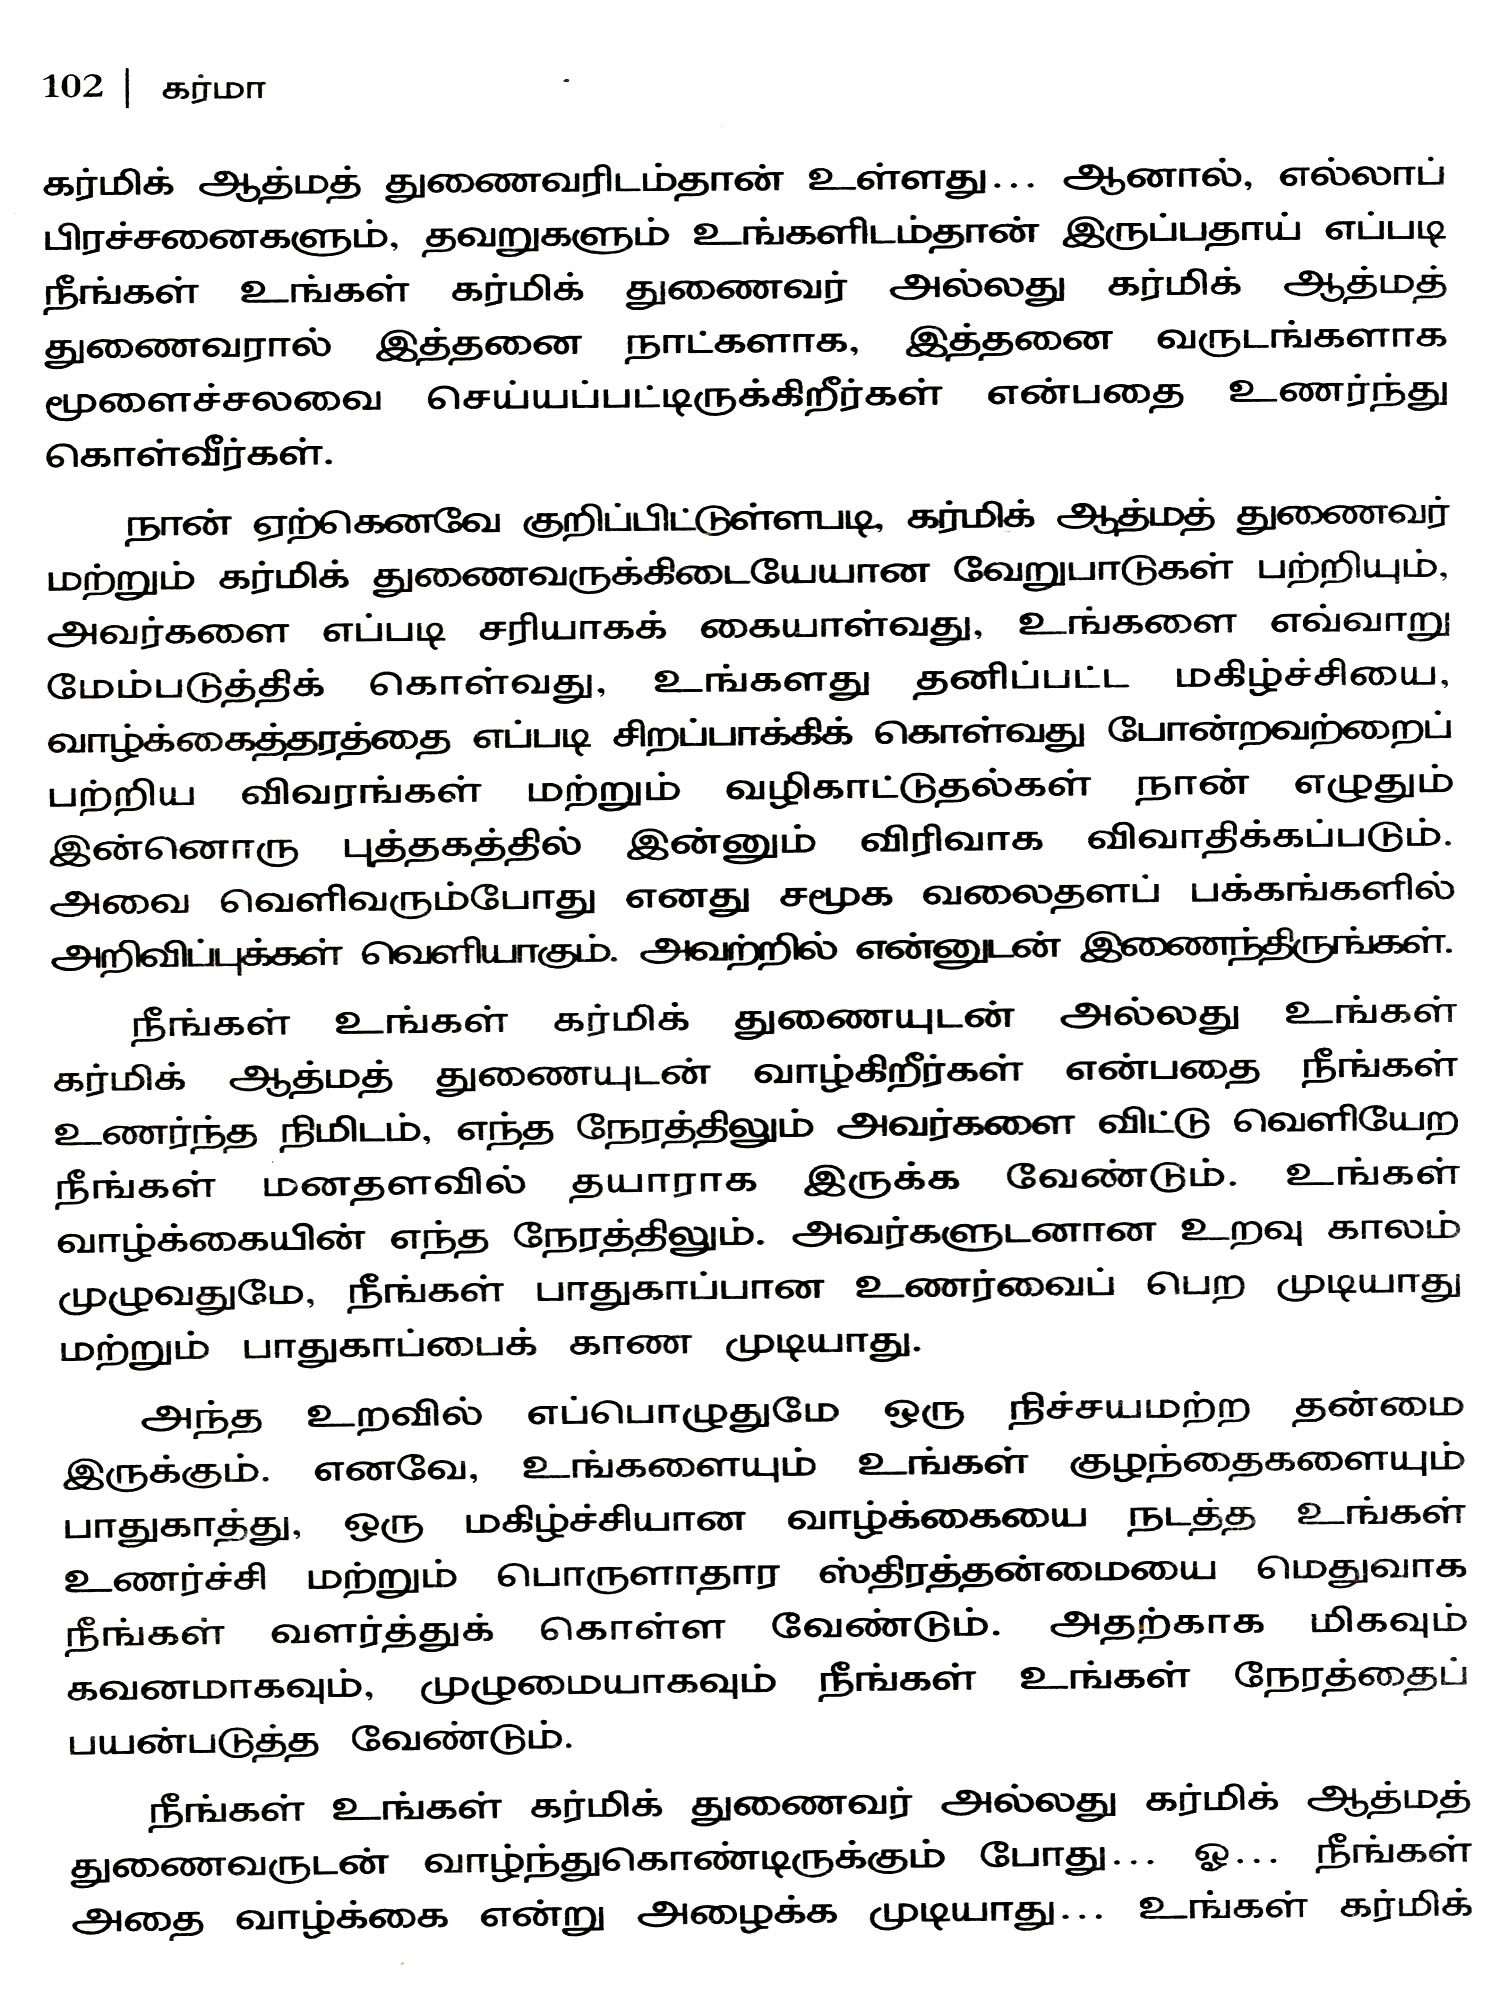 102 | கர்மா
கர்மிக் ஆத்மத் துணைவரிடம்தான் உள்ளது... ஆனால், எல்லாப்
பிரச்சனைகளும், தவறுகளும் உங்களிடம்தான் இருப்பதாய் எப்படி
நீங்கள் உங்கள் கர்மிக் துணைவர் அல்லது கர்மிக் ஆத்மத்
துணைவரால் இத்தனை நாட்களாக, இத்தனை வருடங்களாக
மூளைச்சலவை செய்யப்பட்டிருக்கிறீர்கள் என்பதை உணர்ந்து
கொள்வீர்கள்.
நான் ஏற்கெனவே குறிப்பிட்டுள்ளபடி, கர்மிக் ஆத்மத் துணைவர்
மற்றும் கர்மிக் துணைவருக்கிடையேயான வேறுபாடுகள் பற்றியும்,
அவர்களை எப்படி சரியாகக் கையாள்வது, உங்களை எவ்வாறு
மேம்படுத்திக் கொள்வது, உங்களது தனிப்பட்ட மகிழ்ச்சியை,
வாழ்க்கைத்தரத்தை எப்படி சிறப்பாக்கிக் கொள்வது போன்றவற்றைப்
பற்றிய விவரங்கள் மற்றும் வழிகாட்டுதல்கள் நான் எழுதும்
இன்னொரு புத்தகத்தில் இன்னும் விரிவாக விவாதிக்கப்படும்.
அவை வெளிவரும்போது எனது சமூக வலைதளப் பக்கங்களில்
அறிவிப்புக்கள் வெளியாகும். அவற்றில் என்னுடன் இணைந்திருங்கள்.
நீங்கள் உங்கள் கர்மிக் துணையுடன் அல்லது உங்கள்
கர்மிக் ஆத்மத் துணையுடன் வாழ்கிறீர்கள் என்பதை நீங்கள்
உணர்ந்த நிமிடம், எந்த நேரத்திலும் அவர்களை விட்டு வெளியேற
நீங்கள் மனதளவில் தயாராக இருக்க வேண்டும். உங்கள்
வாழ்க்கையின் எந்த நேரத்திலும். அவர்களுடனான உறவு காலம்
முழுவதுமே, நீங்கள் பாதுகாப்பான உணர்வைப் பெற முடியாது
மற்றும் பாதுகாப்பைக் காண முடியாது.
அந்த உறவில் எப்பொழுதுமே ஒரு நிச்சயமற்ற தன்மை
இருக்கும். எனவே, உங்களையும் உங்கள் குழந்தைகளையும்
பாதுகாத்து, ஒரு மகிழ்ச்சியான வாழ்க்கையை நடத்த உங்கள்
உணர்ச்சி மற்றும் பொருளாதார ஸ்திரத்தன்மையை மெதுவாக
நீங்கள் வளர்த்துக் கொள்ள வேண்டும். அதற்காக மிகவும்
கவனமாகவும், முழுமையாகவும் நீங்கள் உங்கள் நேரத்தைப்
பயன்படுத்த வேண்டும்.
நீங்கள் உங்கள் கர்மிக் துணைவர் அல்லது கர்மிக் ஆத்மத்
துணைவருடன் வாழ்ந்துகொண்டிருக்கும் போது... ஓ... நீங்கள்
அதை வாழ்க்கை என்று அழைக்க முடியாது... உங்கள் கர்மிக்